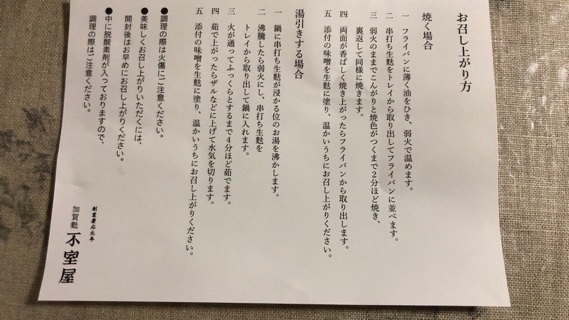 お召し上がり方
焼く場合
一 フライパンに薄く油をひき、弱火で温めます。
二 串打ち生麩をトレイから取り出してフライパンに並べます。
三 弱火のままでこんがりと焼色がつくまで2分ほど焼き、
裏返して同様に焼きます。
四 両面が香ばしく焼き上がったらフライパンから取り出します。
五 添付の味噌を生麩に塗り、温かいうちにお召し上がりください。
湯引きする場合
一 鍋に串打ち生麩が浸かる位のお湯を沸かします。
二 沸騰したら弱火にし、串打ち生麩を
トレイから取り出して鍋に入れます。
三 火が通ってふっくらとするまで4分ほど茹でます。
四 茹で上がったらザルなどに上げて水気を切ります。
五 添付の味噌を生麩に塗り、温かいうちにお召し上がりください。
●調理の際は火傷にご注意ください。
●美味しくお召し上がりいただくには、
開封後はお早めにお召し上がりください。
●中に脱酸素剤が入っておりますので、
調理の際はご注意ください。
創業慶応元年
加賀麩 不室屋